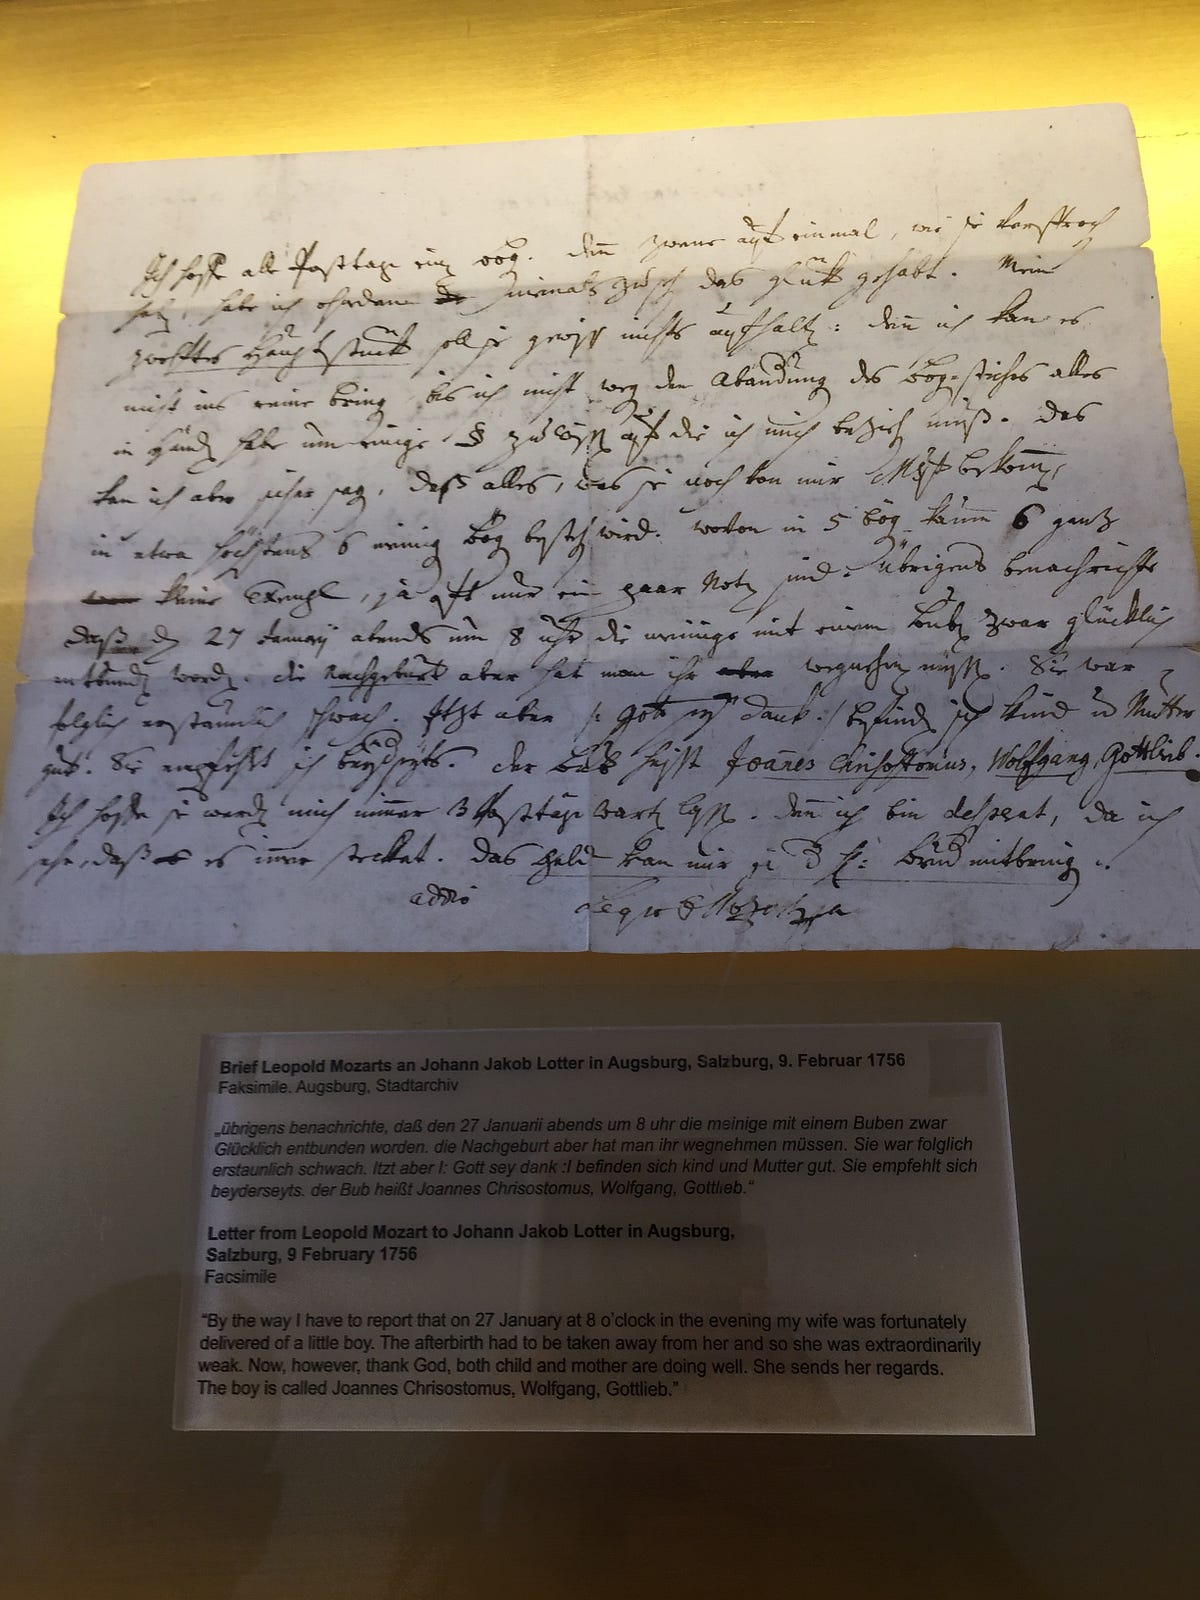 Ich hoffe alle Posttage ein bög. denn zweene auf einmal, wie sie versproch
hab, habe ich ohnedem niemals das glück gehabt. Mein
zwölftes Hauptstück soll sie gewiß nichts aufhalt: denn ich kan es
nicht ins reine bring, bis ich nicht weg der Abänderung des alles
in Händ habe um einige § zu wiss auf die ich mich bezieh muß. Das
kan ich aber sicher sag, daß alles, was sie noch von mir bekomm,
in etwa höchstens 6 meinig bög besteh wird. wovon in 5 bög kaum 6 ganz
kleine Exempl, ja oft nur ein paar Not sind. übrigens benachrichte
daß d 27 Januarij abends um 8 uhr die meinige mit einem Bub zwar glücklich
entbund word. die Nachgeburt aber hat man ihr aber wegnehm müss. Sie war
folglich erstaunlich schwach. Itzt aber /: Gott sey dank :/ befind sich kind und Mutter
gut. Sie empfehlt sich beydseyts. der Bub heißt Joannes Chrisostomus, Wolfgang, Gottlieb.
Ich hoffe sie werd mich nimmer 3 Posttäge wart lass. denn ich bin desperat, da ich
sehe, daß es imer stecket. das geld kan mir mitbring.
addio
Mozart
Brief Leopold Mozarts an Johann Jakob Lotter in Augsburg, Salzburg, 9. Februar 1756
Faksimile. Augsburg, Stadtarchiv
„übrigens benachrichte, daß den 27 Januarii abends um 8 uhr die meinige mit einem Buben zwar
Glücklich entbunden worden. die Nachgeburt aber hat man ihr wegnehmen müssen. Sie war folglich
erstaunlich schwach. Itzt aber I: Gott sey dank :I befinden sich kind und Mutter gut. Sie empfehlt sich
beyderseyts. der Bub heißt Joannes Chrisostomus, Wolfgang, Gottlieb.“
Letter from Leopold Mozart to Johann Jakob Lotter in Augsburg,
Salzburg, 9 February 1756
Facsimile
“By the way I have to report that on 27 January at 8 o’clock in the evening my wife was fortunately
delivered of a little boy. The afterbirth had to be taken away from her and so she was extraordinarily
weak. Now, however, thank God, both child and mother are doing well. She sends her regards.
The boy is called Joannes Chrisostomus, Wolfgang, Gottlieb.”